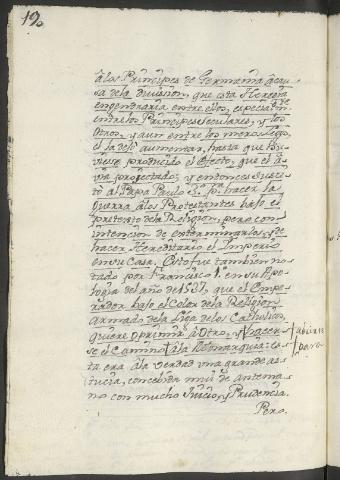 12.
â los Principes de Germania â cau-
sa de la division, que esta Heregia
engendraria entre ellos, especialm.te
entre los Principes Seculares, y los
Otros, y aun entre los mêros Lego,
el la debe aumentar, hasta que hu-
viese producido el Efecto, que el â-
via projectado; y entonces
âl Papa Paulo 3.º p.ª hacer la
Guerra âlos Protestantes bajo el
pretexto dela Religion, pero con
intencion de exterminarlos y de
hacer Hereditario el Imperio
en su Casa. Esto fue tambien no-
tado por Francisco 1.º en su Apo-
logia del año de 1527, que el Empe-
rador bajo el Color dela Religion
Armado dela Liga delos Catholicos,
quiere oprimir â Otro, y hacer-
se el Camino â la Monarquia: es-
ta era âla verdad una grande as-
tucia, concebida mui de antema-
no con mucho Juicio, y Prudencia.
Pero,
abrirse
para